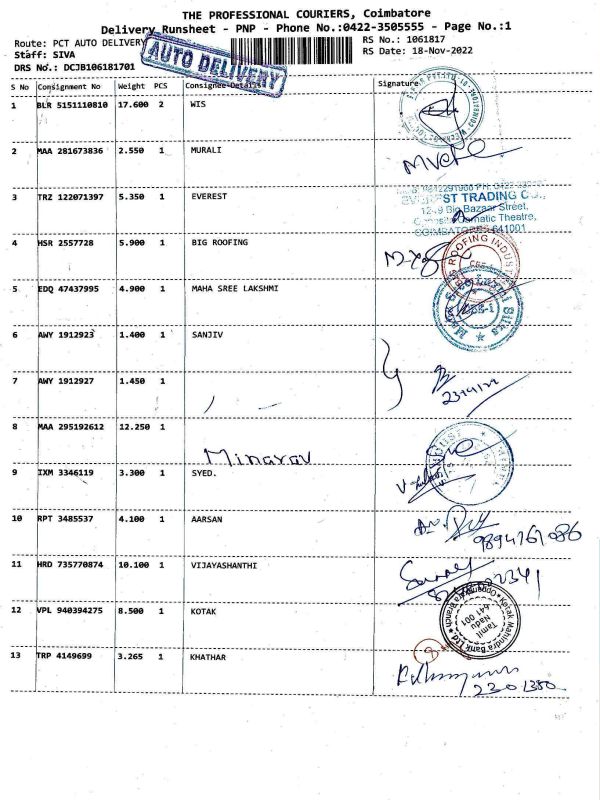 THE PROFESSIONAL COURIERS, Coimbatore
Delivery Runsheet - PNP - Phone No.:0422-3505555 - Page No.:1
Route: PCT AUTO DELIVERY
RS No.: 1061817
Staff: SIVA
RS Date: 18-Nov-2022
DRS No.: DCJB106181701
AUTO DELIVERY
S No Consignment No Weight PCS Consignee Details Signature
1 BLR 5151110810 17.600 2 WIS
2 MAA 281673836 2.550 1 MURALI
3 TRZ 122071397 5.350 1 EVEREST
EVEREST TRADING CO.,
Big Bazaar Street,
Theatre,
COIMBATORE 641001
4 HSR 2557728 5.900 1 BIG ROOFING
ROOFING INDUST
5 EDQ 47437995 4.900 1 MAHA SREE LAKSHMI
6 AWY 1912923 1.400 1 SANJIV
7 AWY 1912927 1.450 1
8 MAA 295192612 12.250 1
9 IXM 3346119 3.300 1 SYED.
10 RPT 3485537 4.100 1 AARSAN
9894767086
11 HRD 735770874 10.100 1 VIJAYASHANTHI
12 VPL 940394275 8.500 1 KOTAK
Kotak Mahindra Bank Ltd.
Tamil
Nadu
641 001
13 TRP 4149699 3.265 1 KHATHAR